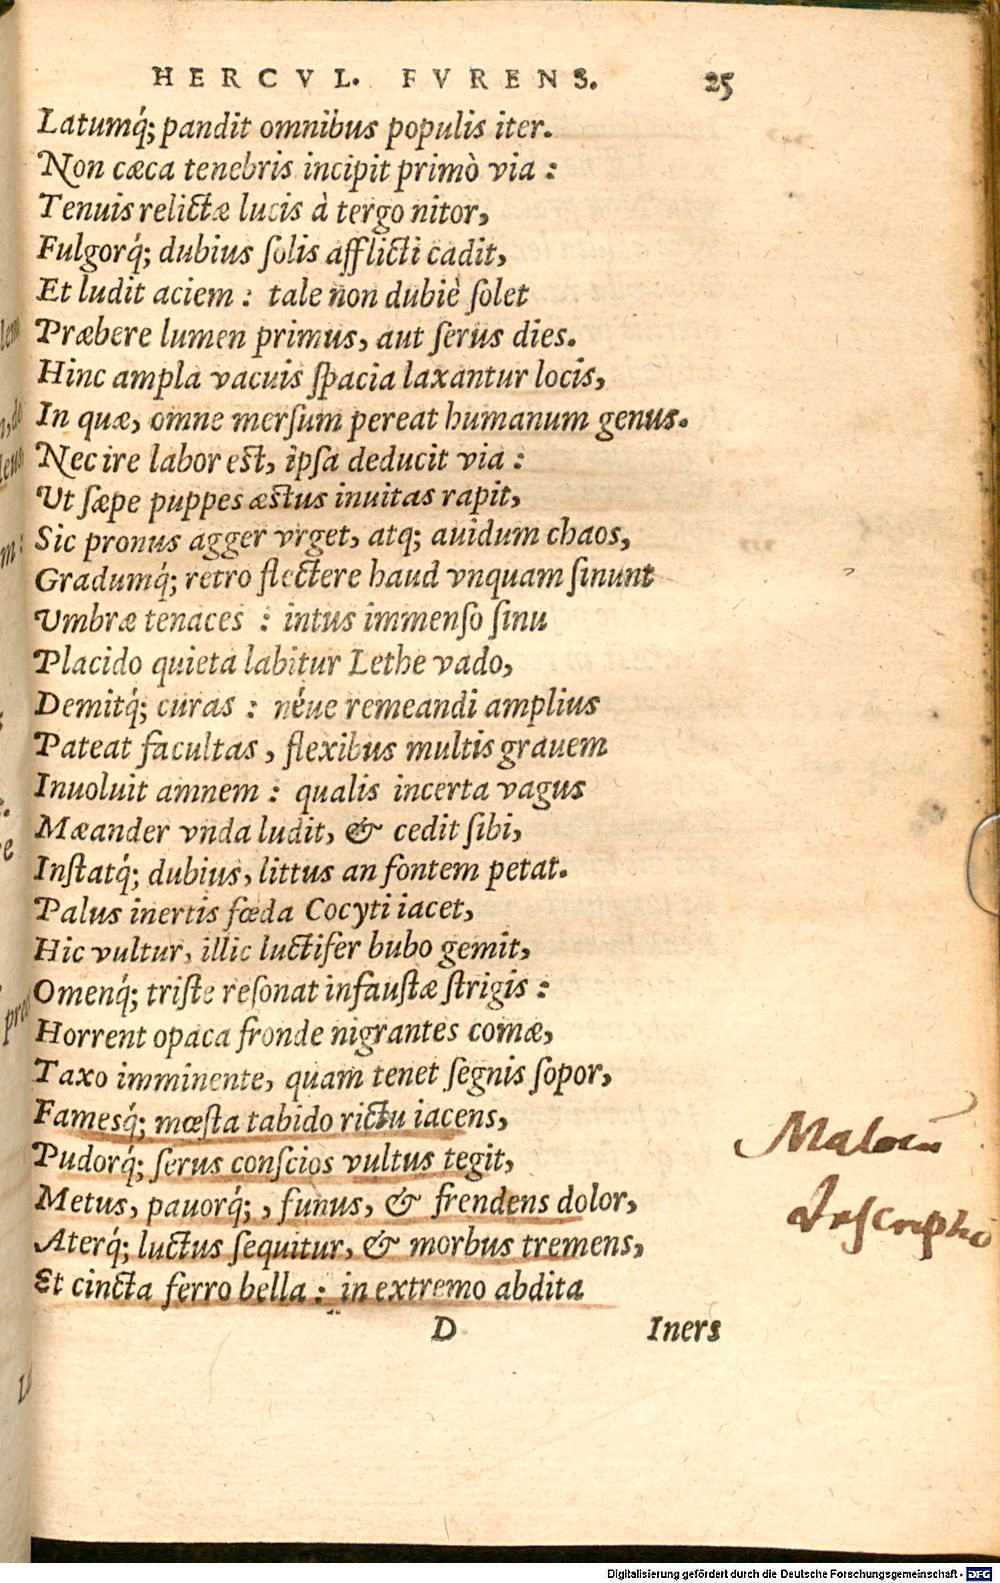 HERCVL. FVRENS. 25
Latumq́; pandit omnibus populis iter.
Non cæca tenebris incipit primò via :
Tenuis relictæ lucis à tergo nitor,
Fulgorq́; dubius ſolis afflicti cadit,
Et ludit aciem : tale non dubiè ſolet
Præbere lumen primus, aut ſerus dies.
Hinc ampla vacuis ſpacia laxantur locis,
In quæ, omne merſum pereat humanum genus.
Nec ire labor est, ipſa deducit via :
Ut ſæpe puppes æstus inuitas rapit,
Sic pronus agger vrget, atq; auidum chaos,
Gradumq́; retro flectere haud vnquam ſinunt
Umbræ tenaces : intus immenſo ſinu
Placido quieta labitur Lethe vado,
Demitq́; curas : néue remeandi amplius
Pateat facultas, flexibus multis grauem
Inuoluit amnem : qualis incerta vagus
Mæander vnda ludit, & cedit ſibi,
Inſtatq́; dubius, littus an fontem petat.
Palus inertis fœda Cocyti iacet,
Hic vultur, illic luctifer bubo gemit,
Omenq́; triſte reſonat infauſtæ ſtrigis :
Horrent opaca fronde nigrantes comæ,
Taxo imminente, quam tenet ſegnis ſopor,
Famesq́; mœſta tabido rictu iacens,
Pudorq́; ſerus conſcios vultus tegit,
Metus, pauorq́; , funus, & frendens dolor,
Aterq́; luctus ſequitur, & morbus tremens,
Et cincta ferro bella : in extremo abdita
D Iners
Digitalisierung gefördert durch die Deutsche Forschungsgemeinschaft - DFG